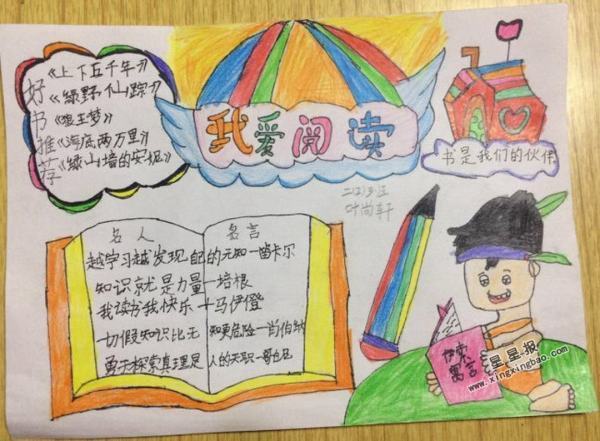 好书推荐
《上下五千年》
《绿野仙踪》
《狼王梦》
《海底两万里》
《绿山墙的安妮》
我爱阅读
书是我们的伙伴
叶尚轩
名人名言
越学习越发现自己的无知—笛卡尔
知识就是力量—培根
我读书我快乐—马伊橙
一切假知识比无知更危险—肖伯纳
勇于探索真理是人的天职—哥白尼
伊索
寓言
星星报
www.xingxingbao.com